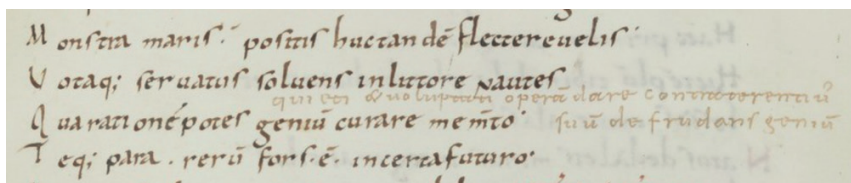 Monstra maris. positis huctandē flectereuelis
Votaq; seruatus soluens inlittore pautes
qui eti & uoluptati operā dare contra terentiū
Qua rationépotes geniū curare mem̄to suū de frudans geniū
Teq; para. rerū fors.ē. incertafuturo.